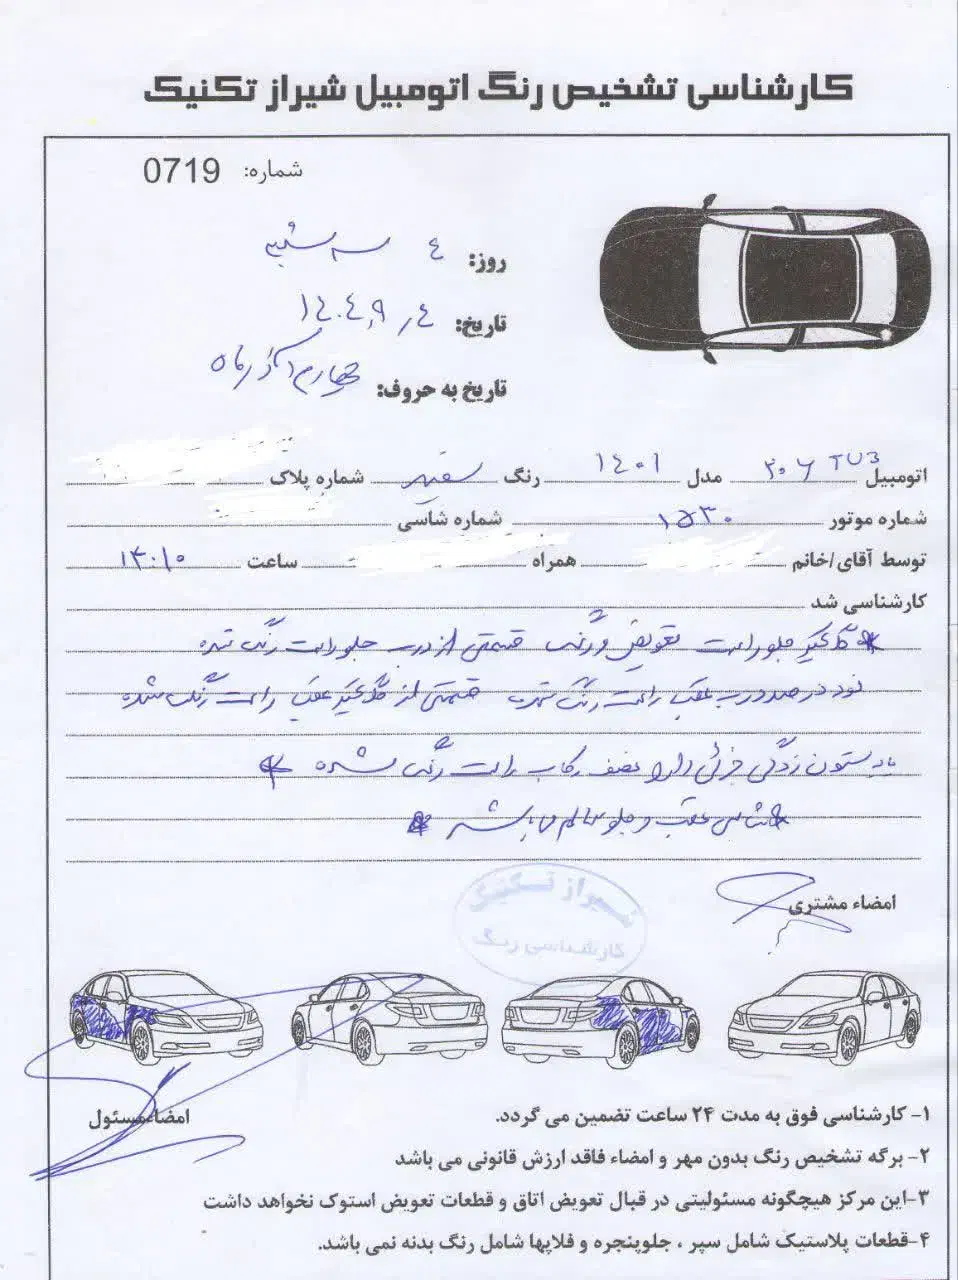 کارشناسی تشخیص رنگ اتومبیل شیراز تکنیک
شماره: 0719
روز: ٤ سه شنبه
تاریخ: ١٤٠٤،٩،٤
تاریخ به حروف: چهارم آذرماه
اتومبیل ۲۰۶ TU3 مدل ۱۴۰۱ رنگ سفید شماره پلاک
شماره موتور ۱۵۳۰ شماره شاسی
توسط آقای/خانم همراه ساعت ۱۳:۱۰
کارشناسی شد
* گلگیر جلو راست تعویض و رنگ قسمتی از درب جلو راست رنگ شده
نود درصد درب عقب راست رنگ شده قسمتی از گلگیر عقب راست رنگ شده
پای ستون زدگی جزئی دارد نصف رکاب راست رنگ شده *
* شاسی عقب و جلو سالم می باشد *
امضاء مشتری
شیراز تکنیک
کارشناسی رنگ
امضاء مسئول
۱- کارشناسی فوق به مدت ۲۴ ساعت تضمین می گردد.
۲- برگه تشخیص رنگ بدون مهر و امضاء فاقد ارزش قانونی می باشد
۳-این مرکز هیچگونه مسئولیتی در قبال تعویض اتاق و قطعات تعویض استوک نخواهد داشت
۴-قطعات پلاستیک شامل سپر ، جلوپنجره و فلاپها شامل رنگ بدنه نمی باشد.